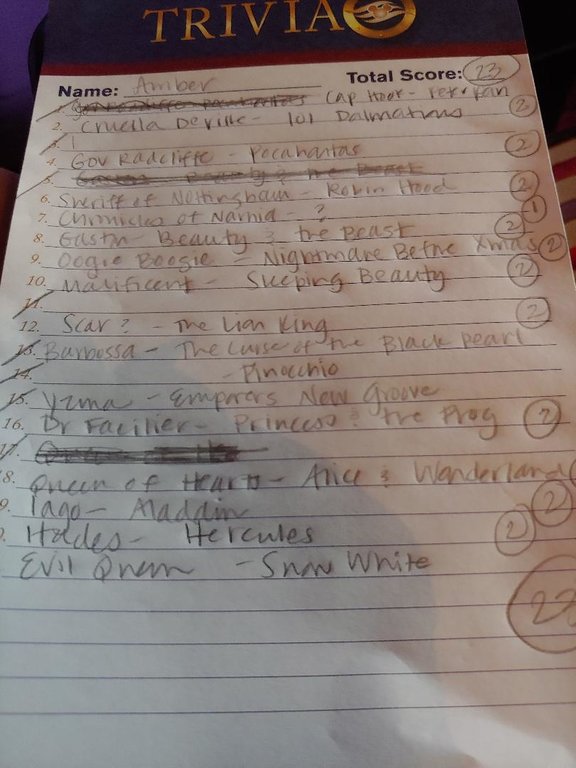 TRIVIA
Name: Amber Total Score: 23
1. Cap Hook - Peter Pan
2. Cruella DeVille - 101 Dalmations 2
3. 1
4. Gov Radcliffe - Pocahantas 2
5. Beauty & the Beast
6. Sheriff of Nottingham - Robin Hood 2
7. Chronicles of Narnia - ? -1
8. Gaston - Beauty & the Beast 2
9. Oogie Boogie - Nightmare Before Xmas 2
10. Malificent - Sleeping Beauty 2
11.
12. Scar? - The Lion King 2
13. Barbossa - The Curse of the Black Pearl
14. - Pinocchio
15. Yzma - Emperors New Groove
16. Dr Facilier - Princess & the Frog 2
17.
18. Queen of Hearts - Alice & Wonderland
9. Iago - Aladdin 2
Hades - Hercules 2
Evil Queen - Snow White
23